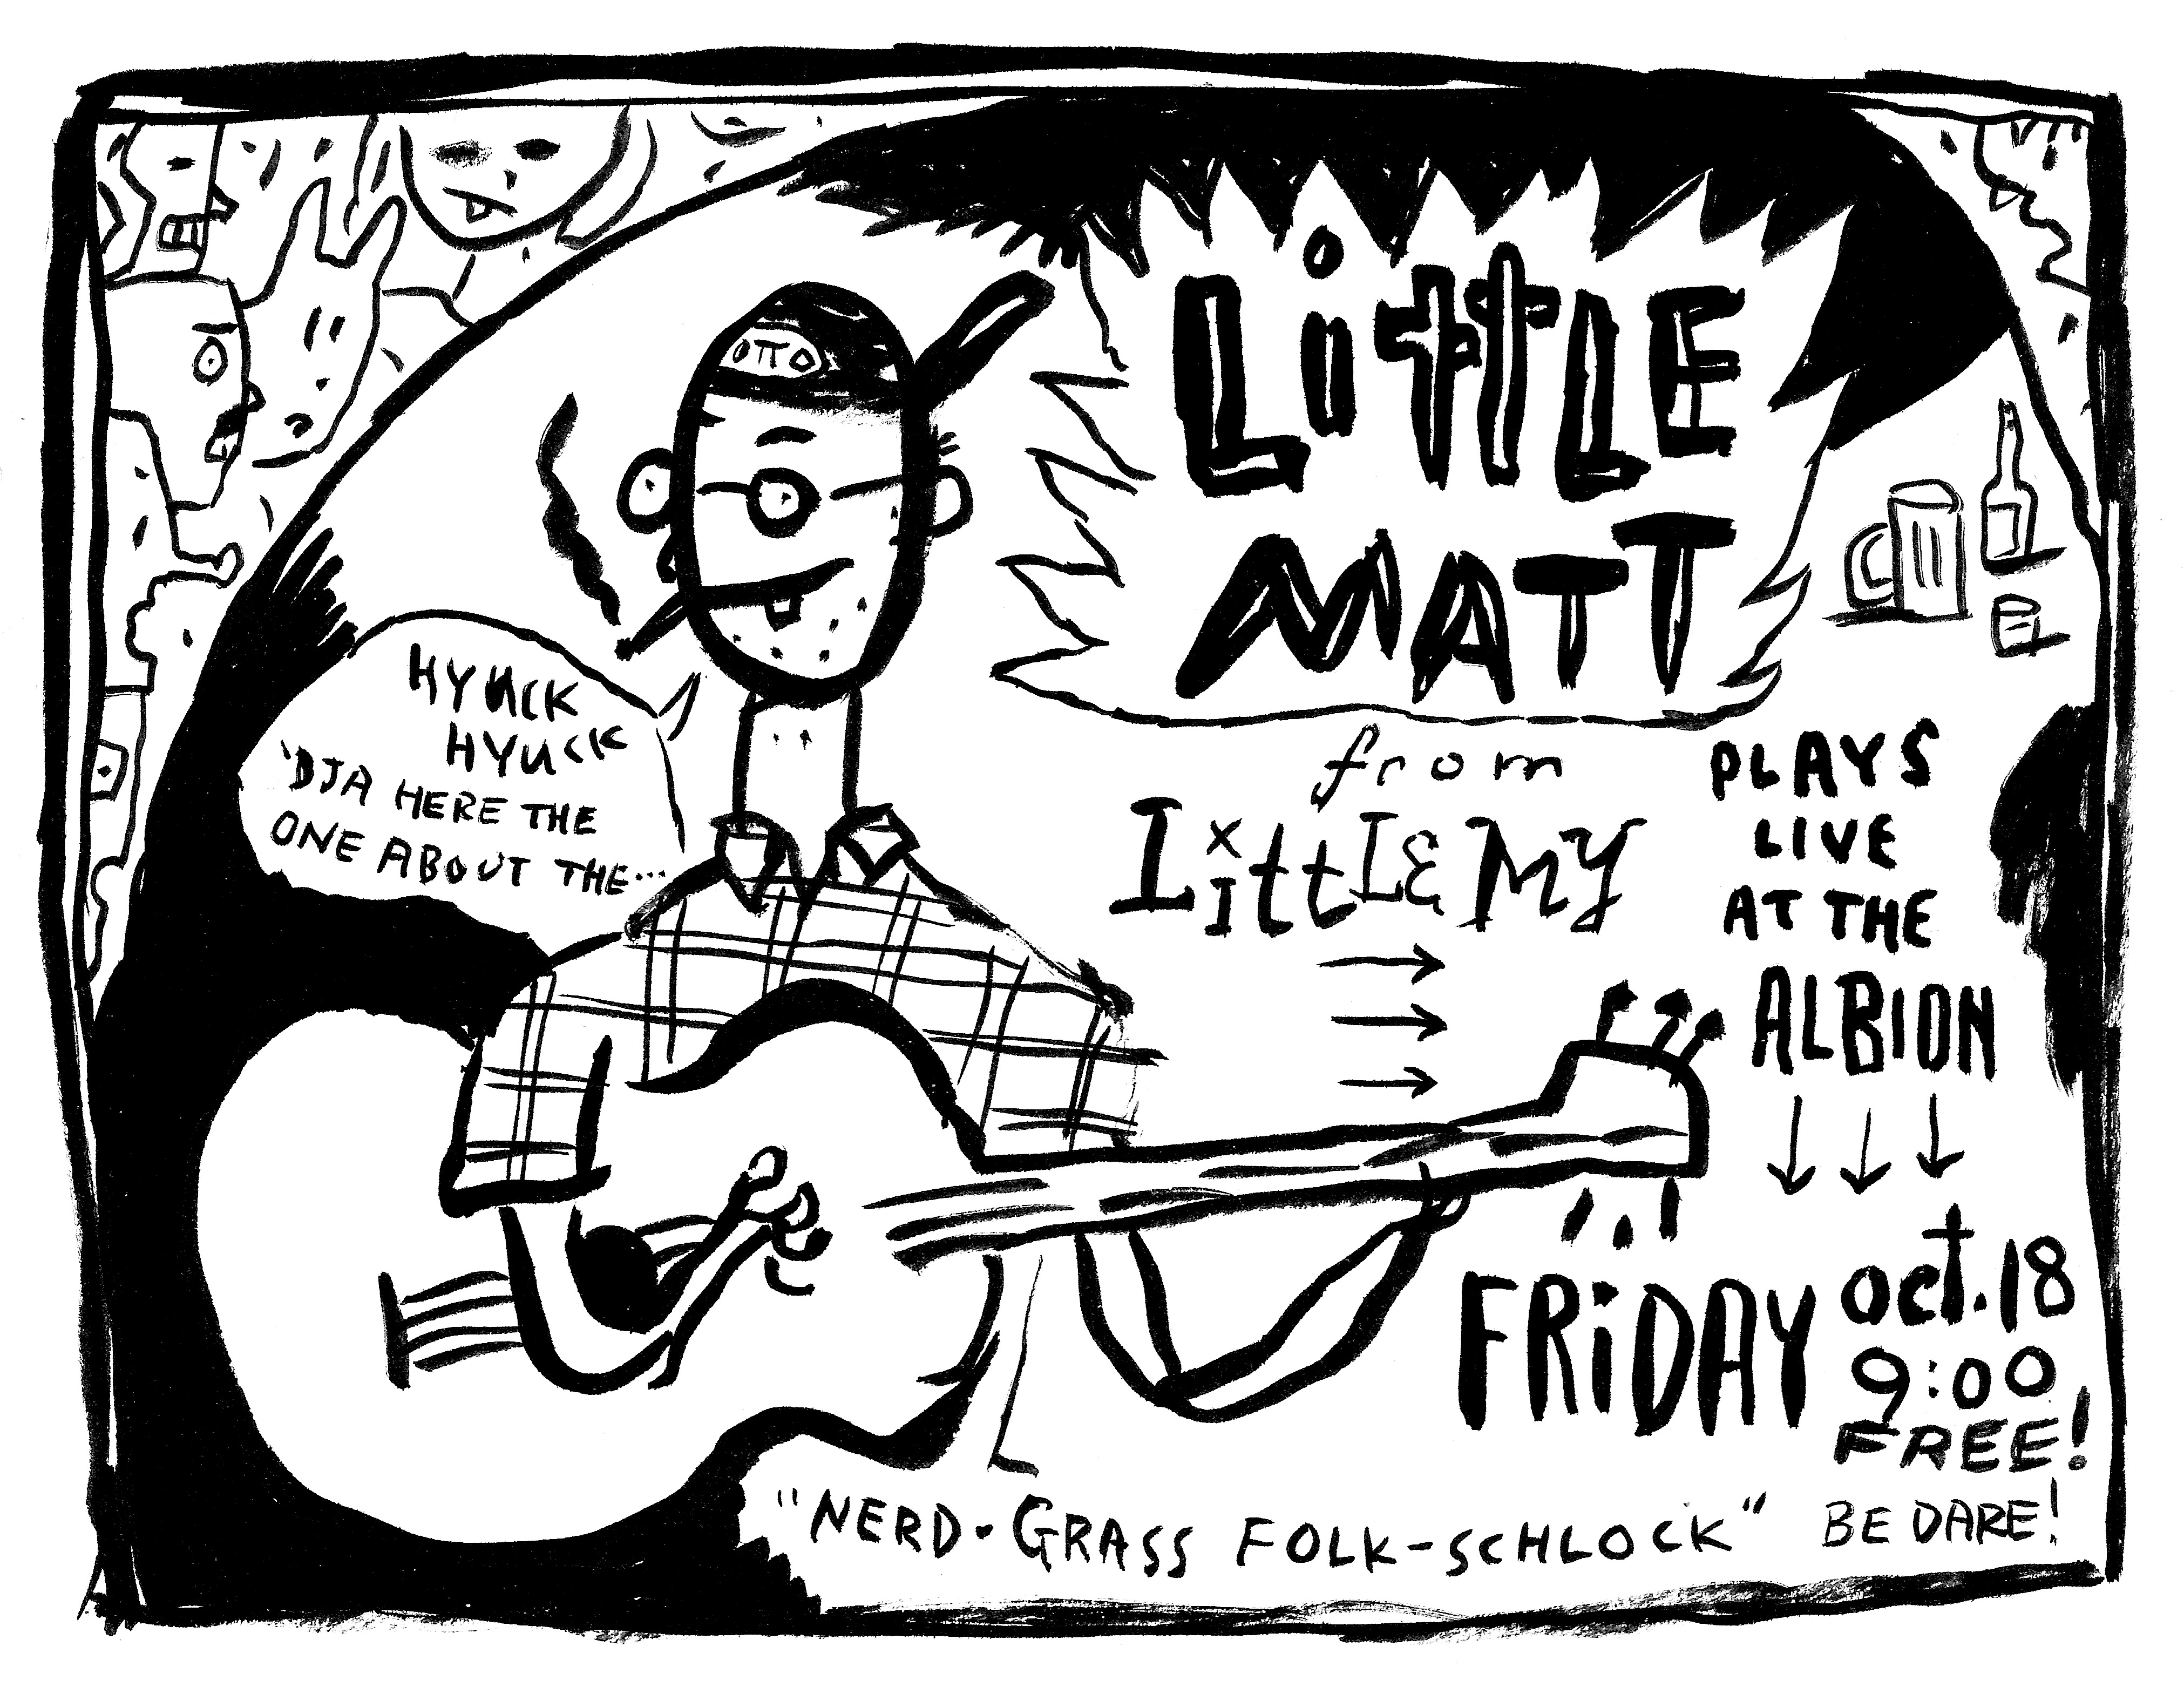 OTTO
LiTTLE
MATT
from
LITTLE MY
PLAYS
LIVE
AT THE
ALBION
HYUCK
HYUCK
'DJA HERE THE
ONE ABOUT THE...
FRiDAY
oct. 18
9:00
FREE!
"NERD-GRASS FOLK-SCHLOCK"
BE DARE!